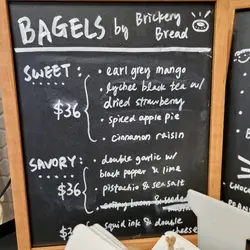 BAGELS by Brickery
Bread
SWEET:
• earl grey mango
• lychee black tea w/
dried strawberry
$36
• spiced apple pie
• cinnamon raisin
SAVORY:
• double garlic w/
black pepper & lime
$36
• pistachio & sea salt
squid ink & double
cheese